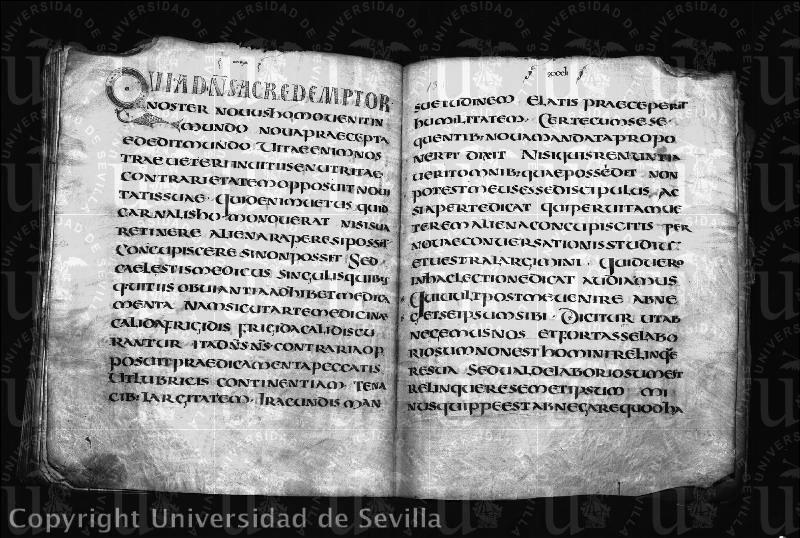 QUIA DNS AC REDEMPTOR
NOSTER NOUUS HOMO UENIT IN
MUNDO NOUA PRAECEPTA
EDEDIT MUNDO UITAE ENIM NOS
TRAE UETERI IN UITIIS ENUTRITAE
CONTRARIETATEM OPPOSUIT NOUI
TATIS SUAE QUID ENIM UETUS QUID
CARNALIS HOMO NOUERAT NISI SUA
RETINERE ALIENA RAPERE SI POSSIT
CONCUPISCERE SI NON POSSIT SED
CAELESTIS MEDICUS SINGULIS QUIBUSQ
QUE UITIIS OBUIANTIA ADHIBET MEDICA
MENTA NAM SICUT ARTE MEDICINAE
CALIDA FRIGIDIS FRIGIDA CALIDIS CU
RANTUR ITA DNS NS CONTRARIA OP
POSUIT PRAEDICAMENTA PECCATIS
UT LUBRICIS CONTINENTIAM TENA
CIB LARGITATEM IRACUNDIS MAN
SUETUDINEM ELATIS PRAECEPERIT
HUMILITATEM CERTE CUM SE SE
QUENTIB NOUA MANDATA PROPO
NERET DIXIT NISI QUIS RENUNTIA
UERIT OMNIB QUAE POSSEDIT NON
POTEST MEUS ESSE DISCIPULUS AC
SI APERTE DICAT QUI PER UITAM UE
TEREM ALIENA CONCUPISCITIS PER
NOUAE CONUERSATIONIS STUDIU
ET UESTRA LARGIMINI QUID UERO
IN HAC LECTIONE DICAT AUDIAMUS
QUI UULT POST ME UENIRE ABNE
GET SEIPSUM SIBI DICITUR UT AB
NEGEMUS NOS ET FORTASSE LABO
RIOSUM NON EST HOMINI RELINQUERE
RE SUA SED UALDE LABORIOSUM EST
RELINQUERE SEMETIPSUM MI
NUS QUIPPE EST ABNEGARE QUOD HA
Copyright Universidad de Sevilla